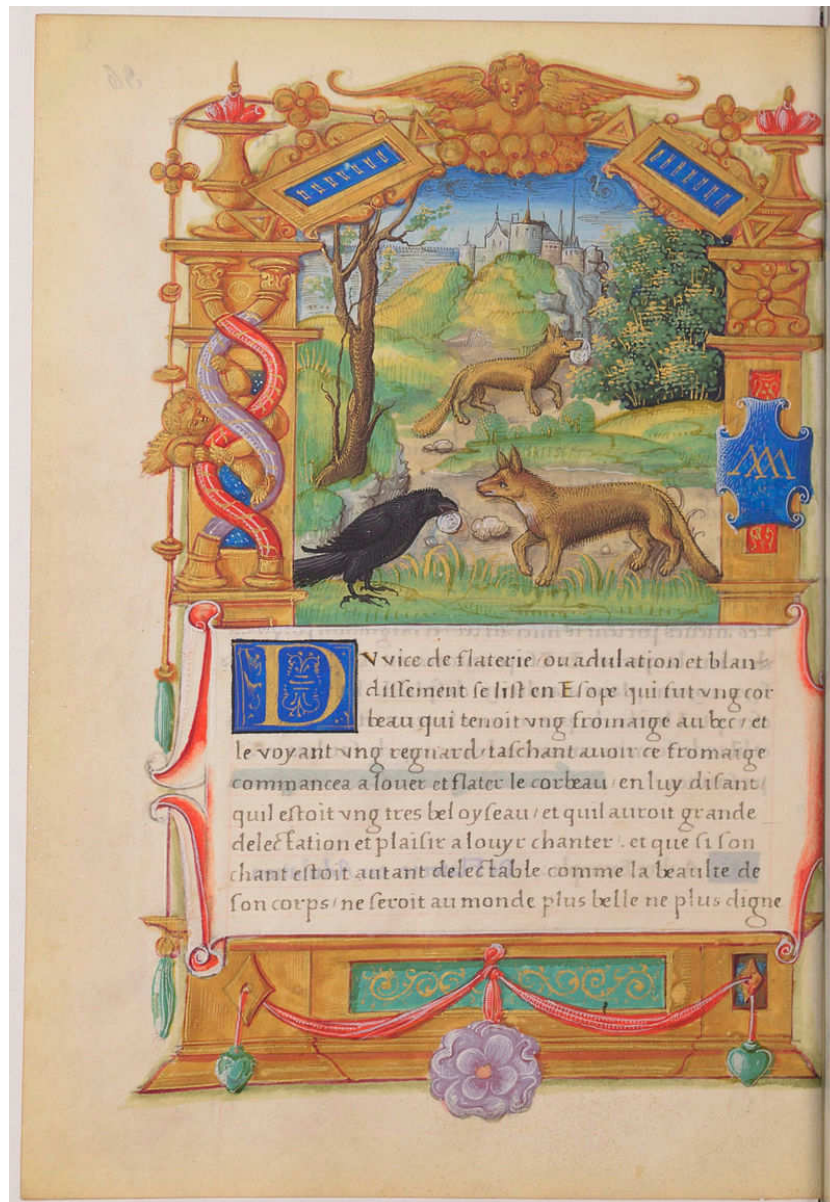 DV vice de flaterie ou adulation et blan-
dissement se list en Esope qui fut vng cor
beau qui tenoit vng fromaige au bec / et
le voyant vng regnard / taschant auoir ce fromaige
commancea a louer et flater le corbeau / en luy disant /
quil estoit vng tres bel oyseau / et quil auroit grande
delectation et plaisir a louyr chanter . et que si son
chant estoit autant delectable comme la beaulte de
son corps / ne seroit au monde plus belle ne plus digne